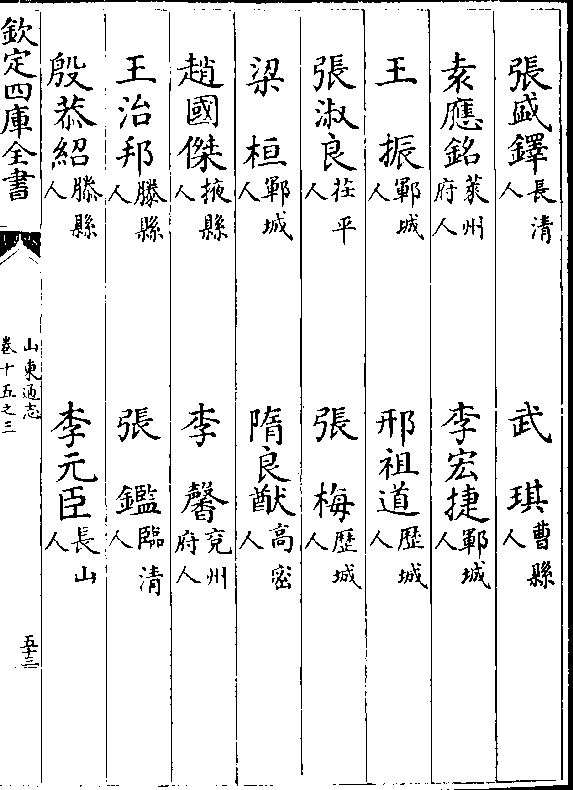 張盛鐸長清人 武琪曹縣人
袁應銘萊州府人 李宏捷鄆城人
王振鄆城人 邢祖道歷城人
張淑良茌平人 張梅歷城人
梁桓鄆城人 隋良猷高密人
趙國傑掖縣人 李馨兗州府人
王治邦滕縣人 張鑑臨清人
殷恭紹滕縣人 李元臣長山人
欽定四庫全書 山東通志卷十五之三 五十三